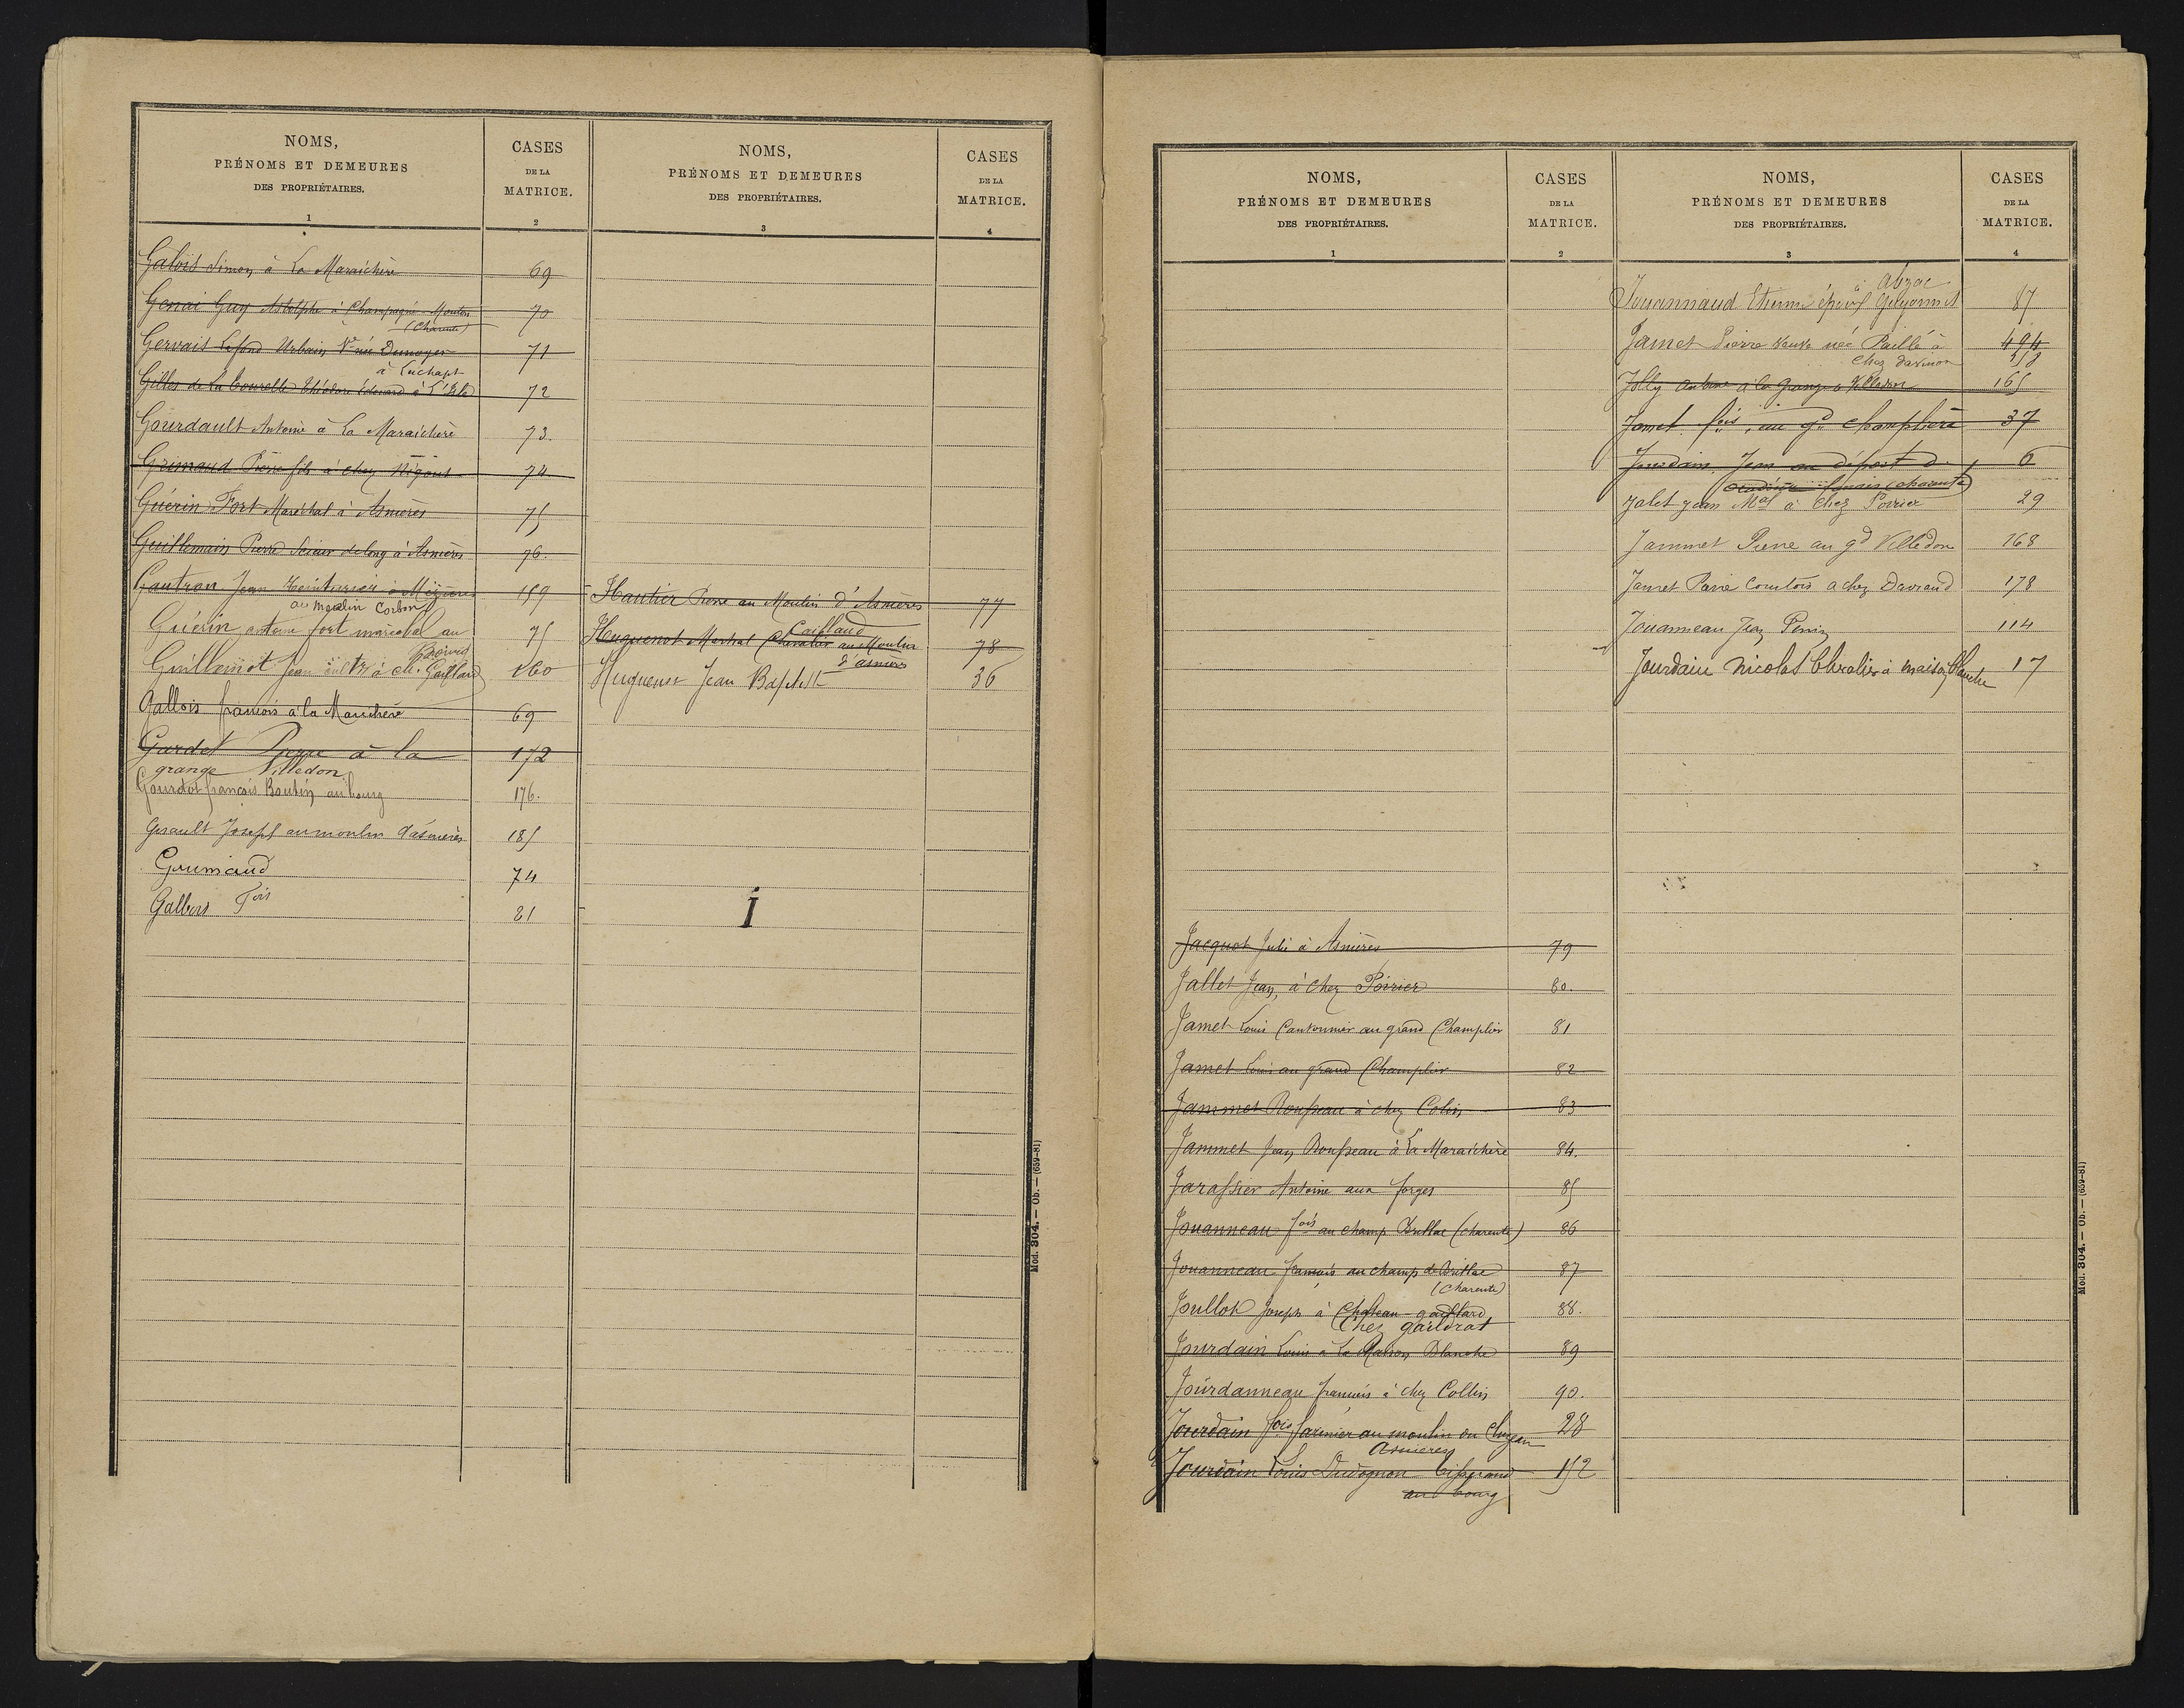 NOMS,
PRÉNOMS ET DEMEURES
DES PROPRIÉTAIRES.
1
CASES
DE LA
MATRICE.
2
Galois Simon à La Maraichère 69
Genai Guy Astolphe à Champagné-Mouton 70
(Charente)
Gervais Lafond Urbain Vve née Dunoyer 71
à Luchapt
Gilles de La Tourelle Théodore Edouard à L'Isle 72
Gourdault Antoine à La Maraichère 73.
Grimaud Pierre fils à chez Rigout 74
Guérin Fort Maréchal à Asnières 75
Guillemain Pierre Scieur de long à Asnières 76.
Gautron Jean à Mézières 159
au moulin Corbon
Guérin antoine fort maréchal au 75
Guillemot Jean à ch. Gaillard 160
Gallois françois à la Maraichère 69
Gardet Pierre à la 172
grange Villedon
Gourdot françois Boutin au bourg 176.
Girault Joseph au moulin d'asnières 185
Grimaud 74
Galbois Fois 21
NOMS,
PRÉNOMS ET DEMEURES
DES PROPRIÉTAIRES.
3
CASES
DE LA
MATRICE.
4
Hautier Pierre au Moulin d'Asnières 77
Caillaud
Huguenot Martial Chevalier au Moulin 78
d'asnières
Huguenot Jean Baptiste 36
I
Mod. 304. — Ob. — (659-81)
NOMS,
PRÉNOMS ET DEMEURES
DES PROPRIÉTAIRES.
1
CASES
DE LA
MATRICE.
2
Jacquet Julie à Asnières 79
Jallet Jean, à chez Poirier 80.
Jamet Louis Cantonnier au grand Champlier 81
Jamet Louis au grand Champlier 82
Jammet Rousseau à chez Colin 83
Jammet Jean Rousseau à La Maraichère 84.
Jarassier Antoine aux forges 85
Jouanneau fois au champ Brillac (charente) 86
Jouanneau françois au champ de Brillac 87
(Charente)
Joullot Joseph à Chateau-gaillard 88.
Chez gaildrat
Jourdain Louis à La Maison Blanche 89
Jourdanneau françois à chez Collin 90.
Jourdain fois farinier au moulin du 28
Asnieres
Jourdain Louis Dudognon Tisserand 152
au bourg
NOMS,
PRÉNOMS ET DEMEURES
DES PROPRIÉTAIRES.
3
CASES
DE LA
MATRICE.
4
à Abzac
Jouannaud Etienne époux Guyonnet 87
Jamet Pierre veuve née Paillé à 494
chez Davinon 518
Jolly antoine à la Grange Villedon 165
Jamet fois, au gd champlière 37
Jourdain Jean au départ d. 6
(charente)
Jalet Jean Mal à Chez Poirier 29
Jammet Pierre au gd Villedon 168
Jamet Pierre Comtois à chez Davraud 178
Jouanneau Jean Penin 114
Jourdain Nicolas Chevalier à maison blanche 17
Mod. 304. — Ob. — (659-81)